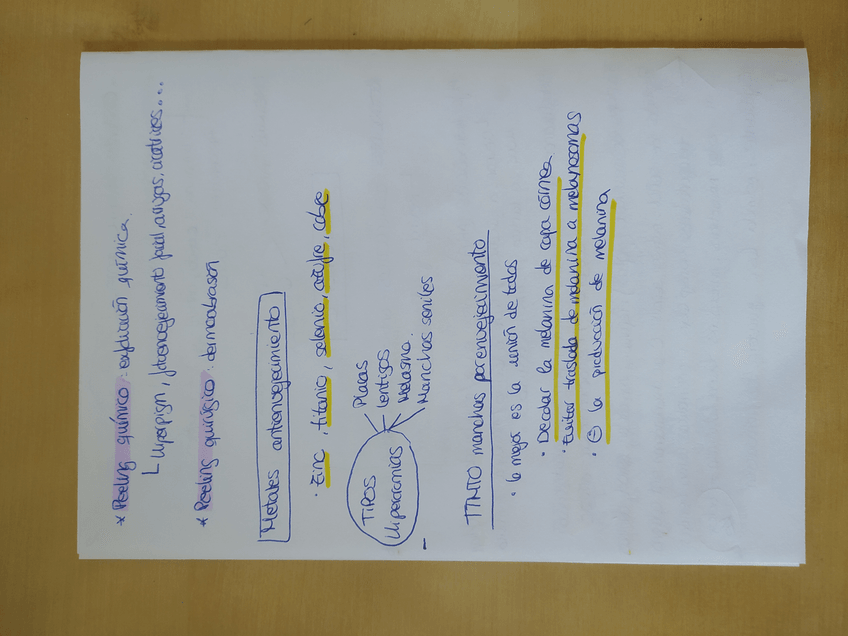 * Peeling químico: exfoliación química.
└ Hiperpigm, fotoenvejecimiento facial, arrugas, cicatrices...
* Peeling quirúrgico: dermoabrasión
Metales antienvejecimiento
· Zinc, titanio, selenio, azufre, cobre
TIPOS
Hipercromías
Placas
Lentigos
Melasma.
Manchas seniles
TTMTO manchas por envejecimiento
· lo mejor es la unión de todos
· Decolar la melanina de capa córnea
· Evitar traslado de melanina a melanosomas
· ⊖ la producción de melanina